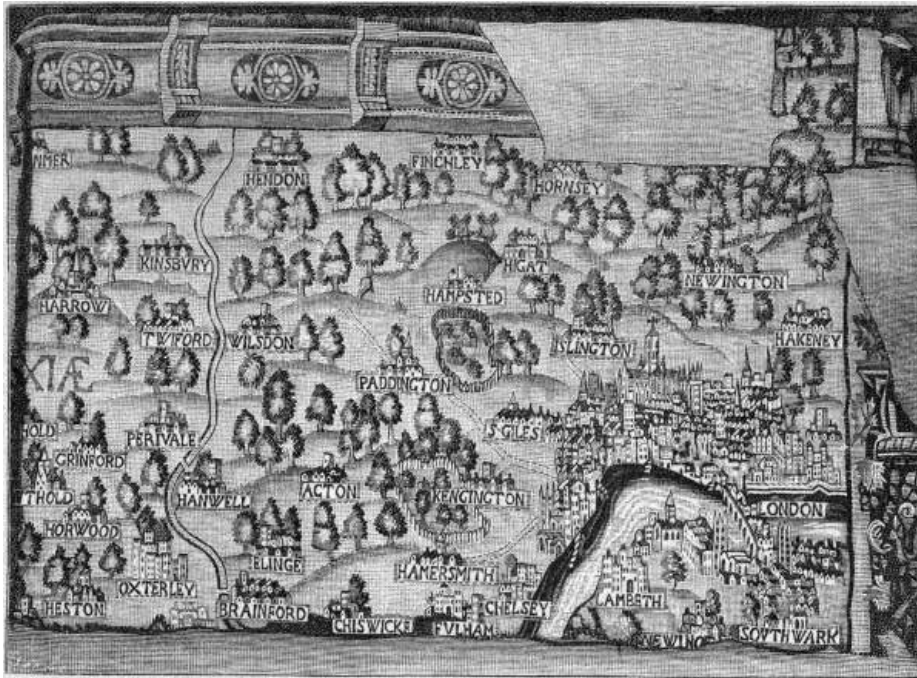 NMER
HENDON
FINCHLEY
HORNSEY
KINSBURY
HIGAT
NEWINGTON
HARROW
HAMPSTED
TWIFORD
WILSDON
ISLINGTON
HAKENEY
XIÆ
PADDINGTON
PERIVALE
S·GILES
HOLD
GRINFORD
HANWELL
ACTON
KENCINGTON
THOLD
LONDON
HORWOOD
ELINGE
HAMERSMITH
OXTERLEY
LAMBETH
HESTON
BRAINFORD
CHELSEY
CHISWICKE
FVLHAM
NEWING
SOVTHWARK